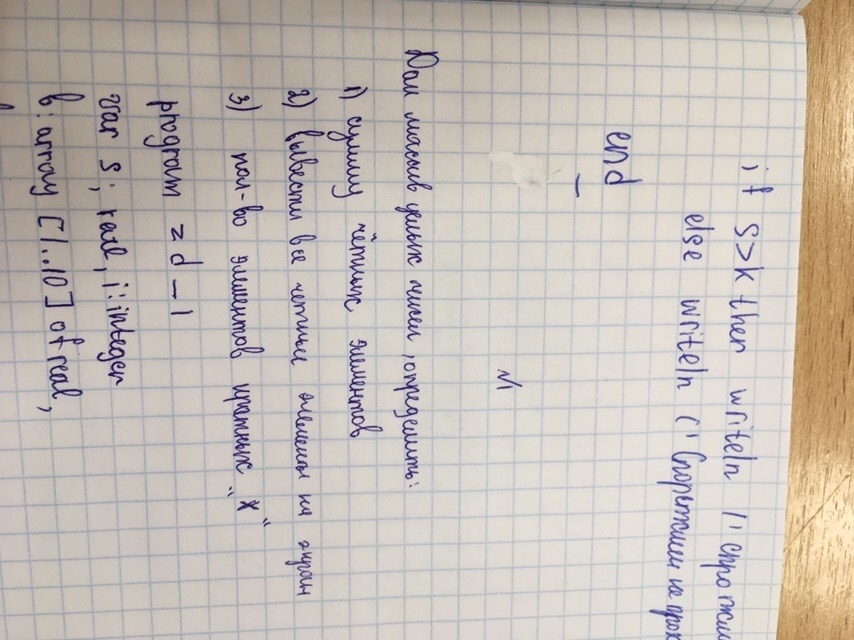 if s>k then writeln (' спортсм
else writeln (' Спортсмен не про
end
№1
Дан массив целых чисел, определить:
1) сумму чётных элементов
2) вывести все четные элементы на экран
3) кол-во элементов кратных "х"
program zd-1
var s; rael, i:integer
b: array [1..10] of real,